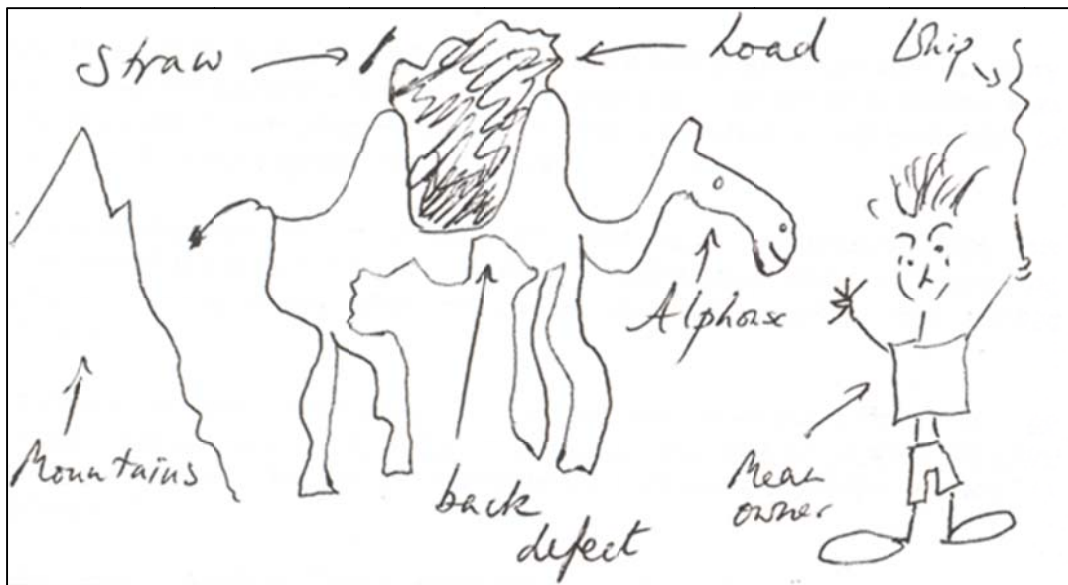 Straw
Load
Whip
Alphonse
Mountains
back
defect
Mean
owner